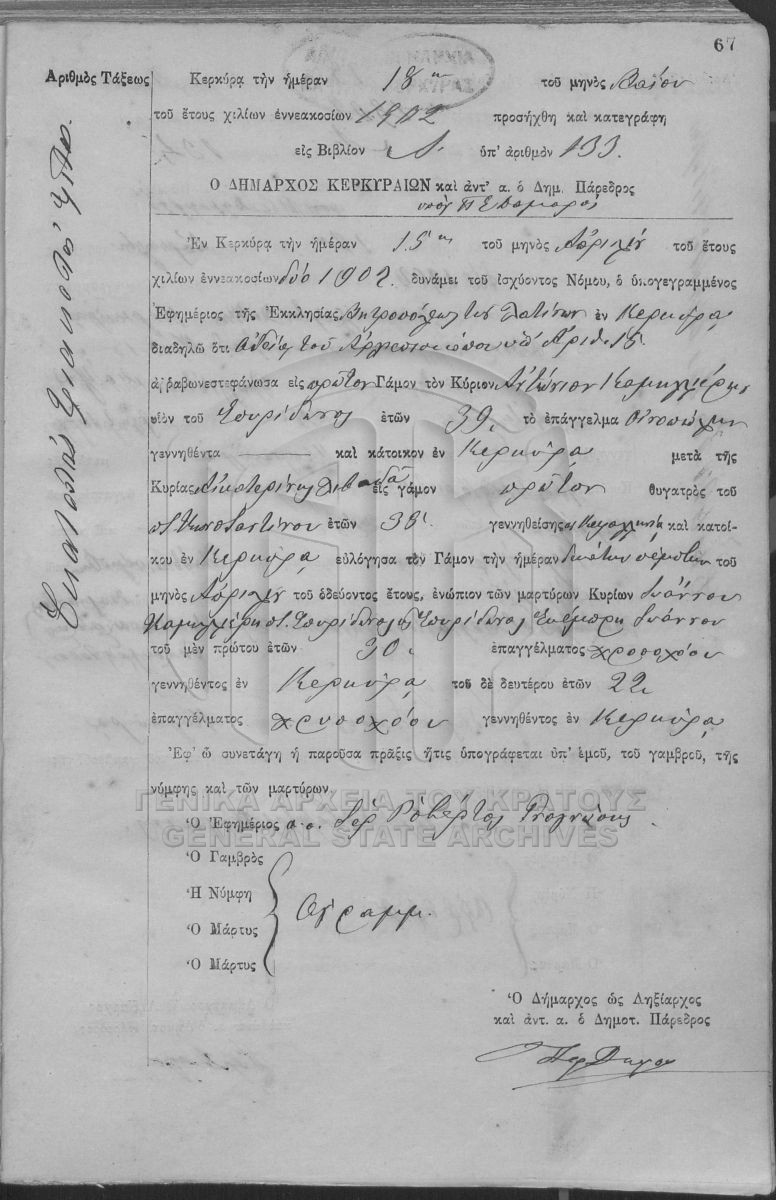 67
Ἀριθμὸς Τάξεως
Ἑκατοστὸς τριακοστὸς τρίτος.
Κερκύρᾳ τὴν ἡμέραν 18ην τοῦ μηνὸς Μαΐου
τοῦ ἔτους χιλίων ἐννεακοσίων 1902 προσήχθη καὶ κατεγράφη
εἰς Βιβλίον Α. ὑπ' ἀριθμὸν 133.
Ὁ ΔΗΜΑΡΧΟΣ ΚΕΡΚΥΡΑΙΩΝ καὶ ἀντ' α. ὁ Δημ. Πάρεδρος
Ἐν Κερκύρᾳ τὴν ἡμέραν 15ην τοῦ μηνὸς Ἀπριλίου τοῦ ἔτους
χιλίων ἐννεακοσίων δύο 1902. δυνάμει τοῦ ἰσχύοντος Νόμου, ὁ ὑπογεγραμμένος
Ἐφημέριος τῆς Ἐκκλησίας Μητροπόλεως των Λατίνων ἐν Κερκύρᾳ
διαδηλῶ ὅτι ἀδείᾳ τοῦ Ἀρχιεπισκόπου ὑπ' Ἀριθ. 15.
ἀῤῥαβωνεστεφάνωσα εἰς πρῶτον Γάμον τὸν Κύριον Ἀντώνιον Καμηλλέρην
υἱὸν τοῦ Σπυρίδωνος ἐτῶν 39, τὸ ἐπάγγελμα οἰνοπώλην
γεννηθέντα — καὶ κάτοικον ἐν Κερκύρᾳ μετὰ τῆς
Κυρίας Αἰκατερίνης εἰς γάμον πρῶτον θυγατρὸς τοῦ
π. Κωνσταντίνου ἐτῶν 38, γεννηθείσης ἐν Κεφαλληνίᾳ καὶ κατοί-
κου ἐν Κερκύρᾳ εὐλόγησα τὸν Γάμον τὴν ἡμέραν δεκάτην πέμπτην τοῦ
μηνὸς Ἀπριλίου τοῦ ὁδεύοντος ἔτους, ἐνώπιον τῶν μαρτύρων Κυρίων Ἰωάννου
Καμηλλέρη π. Σπυρίδωνος ς Σπυρίδωνος Ἰωάννου
τοῦ μὲν πρώτου ἐτῶν 30, ἐπαγγέλματος χρυσοχόου
γεννηθέντος ἐν Κερκύρᾳ τοῦ δὲ δευτέρου ἐτῶν 22,
ἐπαγγέλματος χρυσοχόου γεννηθέντος ἐν Κερκύρᾳ
Ἐφ' ᾧ συνετάγη ἡ παροῦσα πρᾶξις ἥτις ὑπογράφεται ὑπ' ἐμοῦ, τοῦ γαμβροῦ, τῆς
νύμφης καὶ τῶν μαρτύρων.
ΓΕΝΙΚΑ ΑΡΧΕΙΑ ΤΟΥ ΚΡΑΤΟΥΣ
GENERAL STATE ARCHIVES
Ὁ Ἐφημέριος α.α. Σὲρ Ρόβέρτος
Ὁ Γαμβρὸς
Ἡ Νύμφη
Ἀγραμμ.
Ὁ Μάρτυς
Ὁ Μάρτυς
Ὁ Δήμαρχος ὡς Ληξίαρχος
καὶ ἀντ. α. ὁ Δημοτ. Πάρεδρος